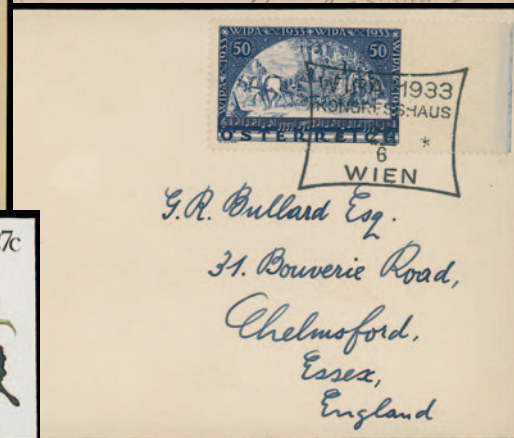 WIPA 1933 WIPA 1933
50 50
WIPA 1933
ÖSTERREICH
WIPA 1933
KONGRESSHAUS
6 *
WIEN
G.R. Bullard Esq.
31. Bouverie Road,
Chelmsford,
Essex,
England
7c